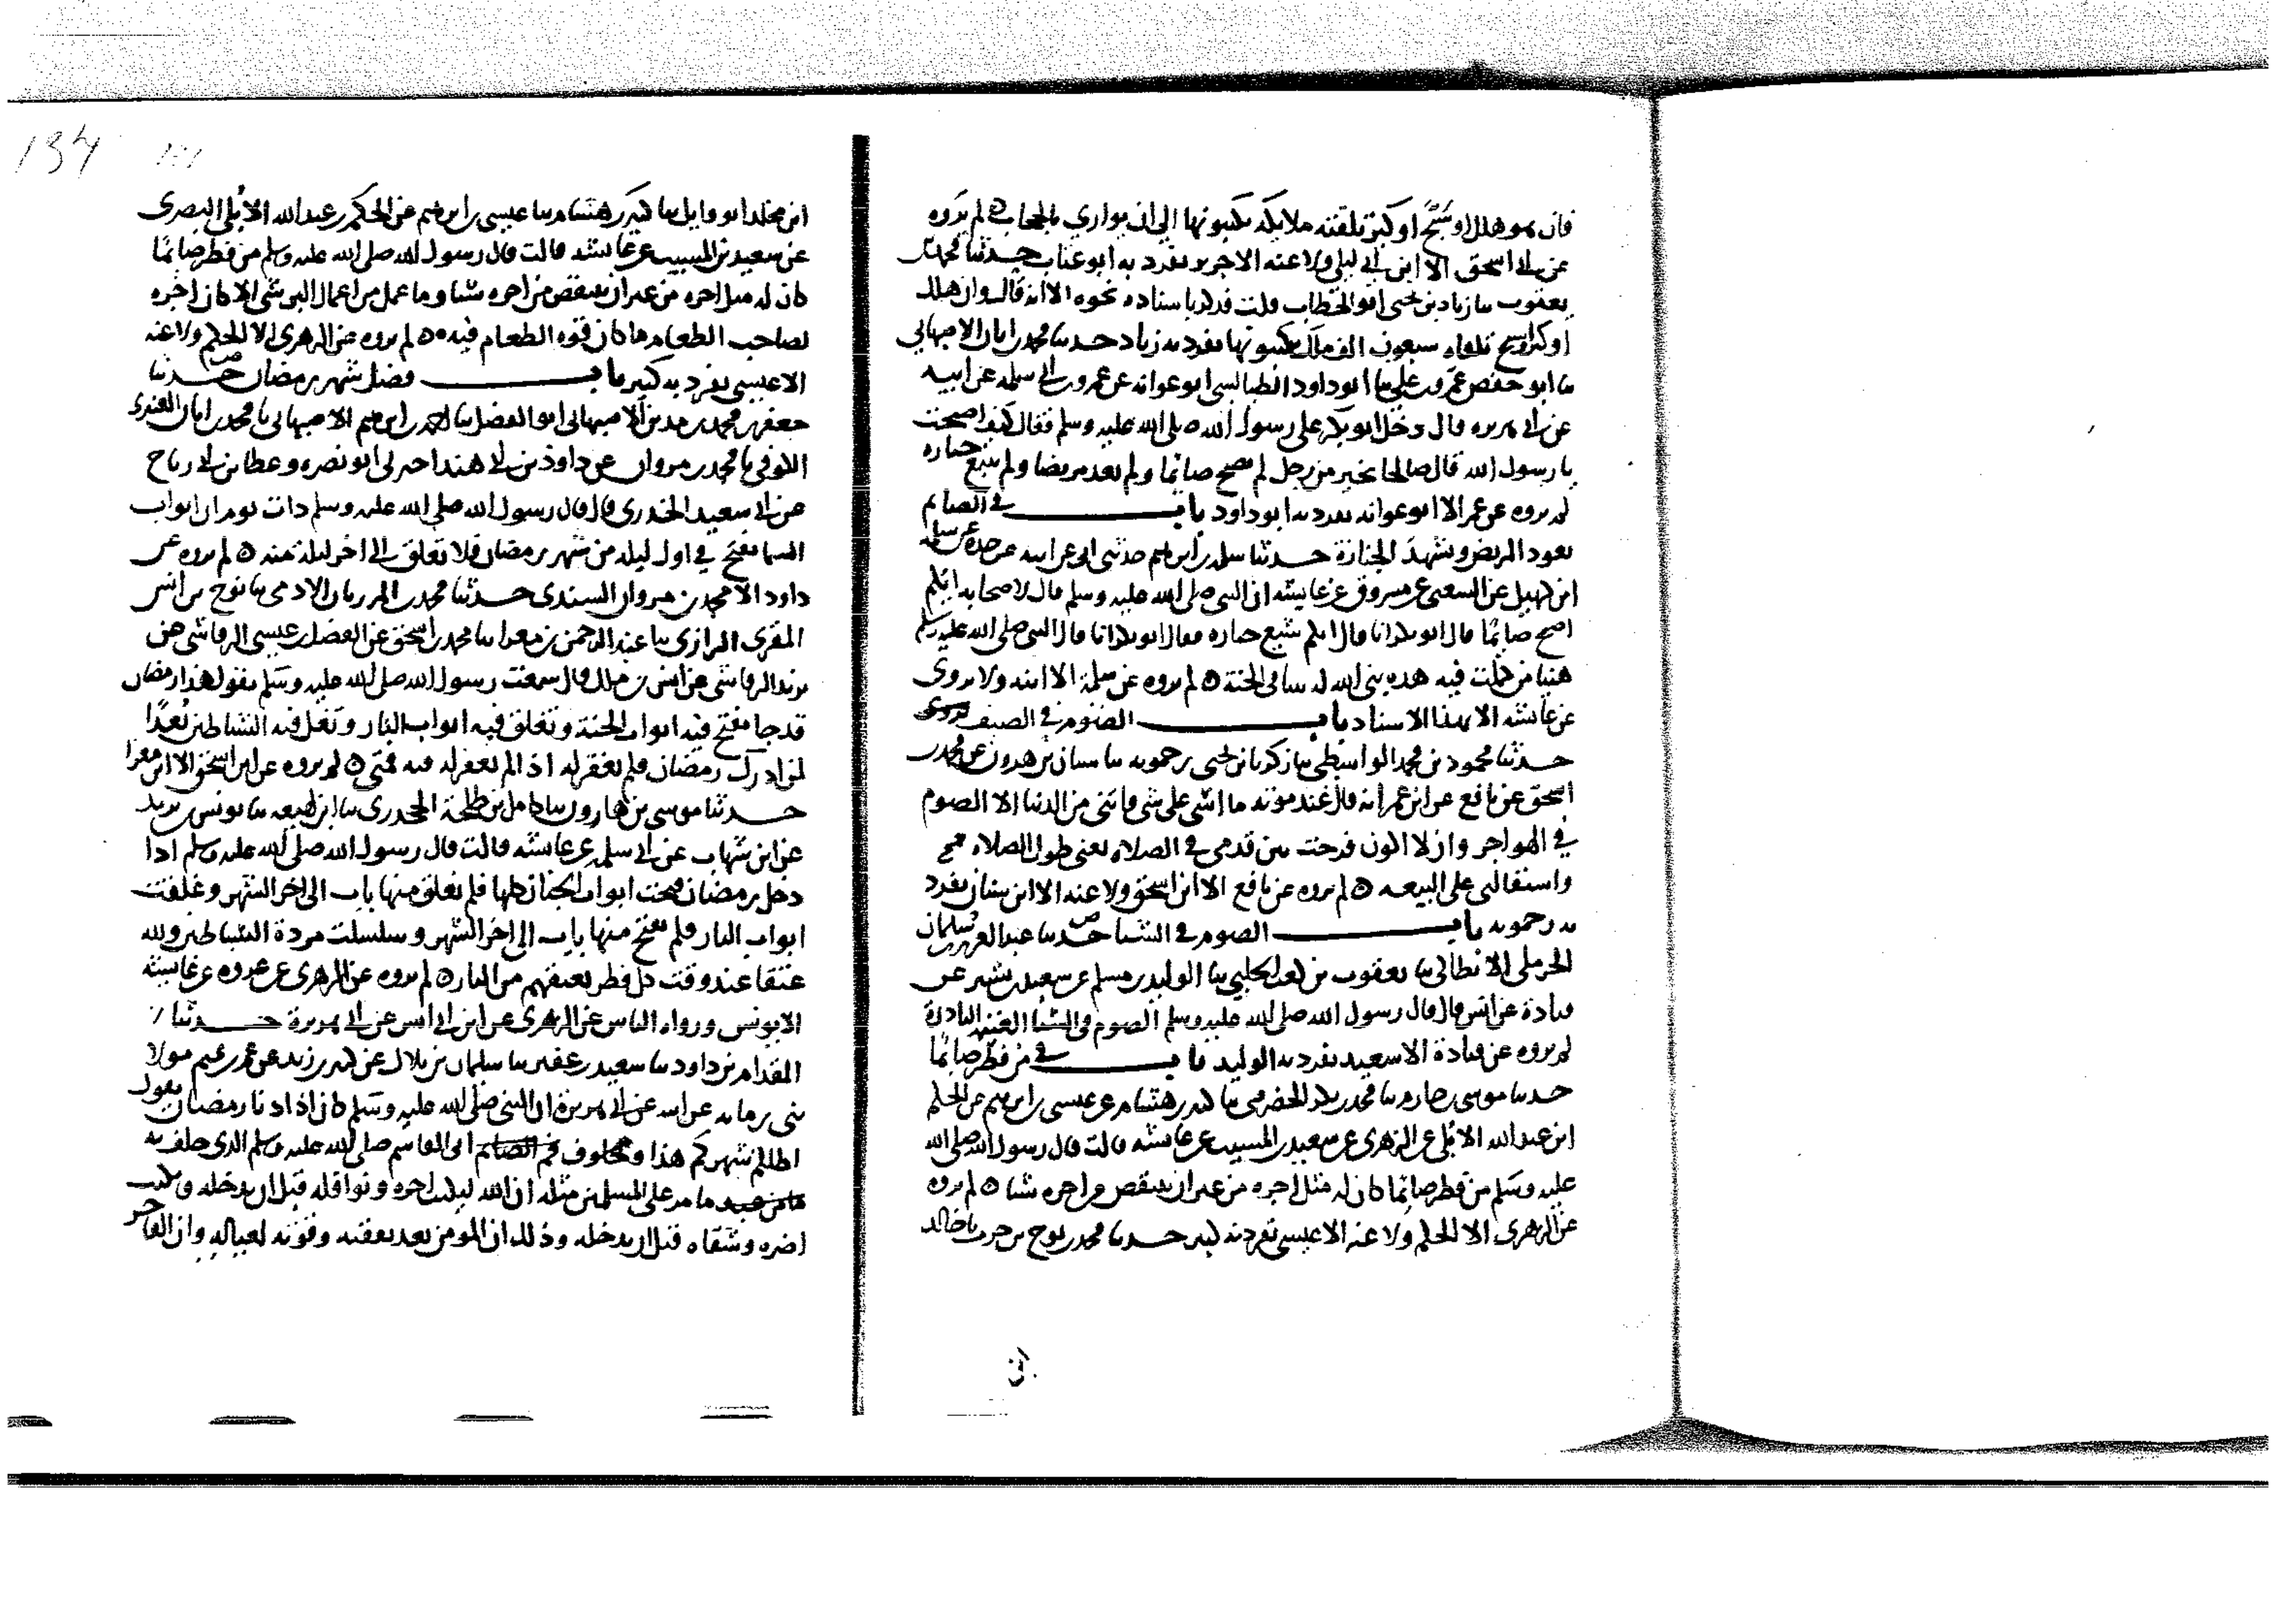 فان هو هلل او سَبَّحَ او كبر تلقته ملايكه يكتبونها الى ان يواري بالحجاب ه لم يروه
عن ابي اسحق الا ابن ابي ليلى ولا عنه الا جرير تفرد به ابو عتاب حدثنا محمد بن
يعقوب نا زياد بن يحيى ابو الخطاب قلت فذكر باسناده نحوه الا انه قال وان هلل
او كبر او سبح تلقاه سبعون الف ملك يكتبونها تفرد به زياد حدثنا محمد بن ابان الاصبهاني
نا ابو حفص عمرو بن علي نا ابو داود الطيالسي ابو عوانه عن عمر بن ابي سلمه عن ابيه
عن ابي هريره قال دخل ابو بكر على رسول الله صلى الله عليه وسلم فقال كيف اصبحت
يا رسول الله قال صالحا بخير من رجل لم يصبح صائما ولم يعد مريضا ولم يتبع جنازه
لم يروه عن عمر الا ابو عوانه تفرد به ابو داود باب في الصائم
يعود المريض ويشهد الجنازة حدثنا سلمه بن ابراهيم حدثني ابي عن ابيه عن جده عن سلمه
ابن كهيل عن الشعبي عن مسروق عن عايشه ان النبي صلى الله عليه وسلم قال لاصحابه ايكم
اصبح صائما قال ابو بكر انا قال ايكم شيع جنازه فقال ابو بكر انا قال النبي صلى الله عليه وسلم
هنيا من كملت فيه هذه بنى الله له بيتا في الجنة ه لم يروه عن سلمة الا ابنه ولا يروى
عن عائشه الا بهذا الاسناد باب الصوم في الصيف
حدثنا محمود بن محمد الواسطي نا زكريا بن يحيى رحمويه نا سنان بن هرون عن محمد بن
اسحق عن نافع عن ابن عمر انه قال عند موته ما اسى على شي فاتني من الدنيا الا الصوم
في الهواجر وان لا اكون فرحت بين قدمي في الصلاه يعني طول الصلاه
واستقالتي علي البيعه ه لم يروه عن نافع الا ابن اسحق ولا عنه الا ابن سنان تفرد
به رحمويه باب الصوم في الشتا حدثنا عبد العزيز بن سليمان
الحرملي الانطاكي نا يعقوب بن كعب الحلبي نا الوليد بن مسلم عن سعيد بن بشير عن
قتادة عن انس قال قال رسول الله صلى الله عليه وسلم الصوم في الشتا الغنيمه الباردة
لم يروه عن قتادة الا سعيد تفرد به الوليد باب في من فطر صائما
حدثنا موسى بن هارون نا محمد بن بكار الحضرمي نا كثير بن هشام عن عيسى بن ابراهيم عن الحكم
ابن عبد الله الايلي عن الزهري عن سعيد بن المسيب عن عائشه قالت قال رسول الله صلى الله
عليه وسلم من فطر صائما كان له مثل اجره من غير ان ينقص من اجره شيا ه لم يروه
عن الزهري الا الحكم ولا عنه الا عيسى تفرد به كثير حدثنا محمد بن نوح بن حرب نا خالد
ابن
134
ابن مخلد ابو وايل نا كثير بن هشام نا عيسى بن ابراهيم عن الحكم بن عبد الله الايلي البصرى
عن سعيد بن المسيب عن عائشه قالت قال رسول الله صلى الله عليه وسلم من فطر صائما
كان له مثل اجره من غير ان ينقص من اجره شيا وما عمل من اعمال البر شي الا كان اجره
لصاحب الطعام ما كان قوه الطعام فيه ه لم يروه عن الزهرى الا الحكم ولا عنه
الا عيسى تفرد به كثير باب فضل شهر رمضان حدثنا
جعفر بن محمد بن الاصبهاني ابو الفضل نا احمد بن ابراهيم الاصبهاني نا محمد بن ابان العنبري
الكوفي نا محمد بن مروان عن داود بن ابي هند اخبرني ابو نضره وعطا بن ابي رباح
عن ابي سعيد الخدري قال قال رسول الله صلى الله عليه وسلم ذات يوم ان ابواب
السما تفتح في اول ليله من شهر رمضان فلا تغلق الى اخر ليلة منه ه لم يروه عن
داود الا محمد بن مروان السندي حدثنا محمد بن المرزبان الادمي نا نوح بن انس
المقرى الرازي نا عبد الرحمن بن مغرا نا محمد بن اسحق عن الفضل بن عيسى الرقاشي عن
يزيد الرقاشي عن انس بن ملك قال سمعت رسول الله صلى الله عليه وسلم يقول هذا رمضان
قد جا تفتح فيه ابواب الجنة وتغلق فيه ابواب النار وتغل فيه الشياطين بُعدًا
لمن ادرك رمضان فلم يغفر له اذ الم يغفر له فيه فمتى ه لم يروه عن ابن اسحق الا ابن مغرا
حدثنا موسى بن هارون نا كامل بن طلحة الجحدري نا ابن لهيعه نا يونس بن يزيد
عن ابن شهاب عن ابي سلمه عن عائشه قالت قال رسول الله صلى الله عليه وسلم اذا
دخل رمضان فتحت ابواب الجنان كلها فلم يغلق منها باب الى اخر الشهر وغلقت
ابواب النار فلم يفتح منها باب الى اخر الشهر وسلسلت مردة الشياطين ولله
عتقا عند وقت كل فطر يعتقهم من النار ه لم يروه عن الزهرى عن عروه عن عايشه
الا يونس ورواه الناس عن الزهرى عن ابن ابي انس عن ابي هريرة حدثنا
المقدام بن داود نا سعيد بن عفير نا سليمان بن بلال عن كثير بن زيد عن عمر بن تميم مولا
بني رمانه عن ابيه عن ابي هريرة ان النبي صلى الله عليه وسلم كان اذا دنا رمضان يقول
اظلكم شهركم هذا ومحلوف ابي القاسم صلى الله عليه وسلم الذي حلف به
ما مر على المسلمين مثله ان الله ليكتب اجره ونوافله قبل ان يدخله ويكتب
اصره وشقاه قبل ان يدخله وذلك ان المومن يعد نفقته وقوته لعياله وان الفاجر